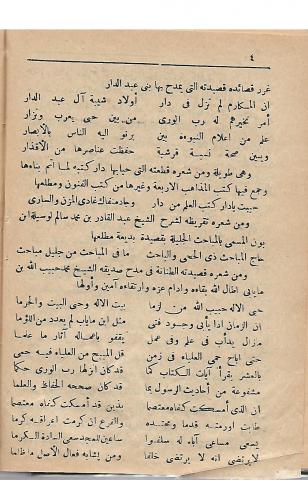 ٤
غرر قصائده قصيدته التى يمدح بها بنى عبد الدار
ان المكارم لم تزل فى دار أولاد شيبة آل عبد الدار
أمر تخيرهم له رب الورى من بين حى يعرب ونزار
علم من اعلام النبوءة بين يرنو اليه الناس بالأبصار
وبين صحة نسبة قرشية حفظت عناصرها من الأقذار
وهى طويلة ومن شعره قطعته التى حيا بها دار كتبه لما اتم بناءها
وجمع فيها كتب المذاهب الاربعة وغيرها من كتب الفنون ومطلعها
حييت يا دار كتب العلم من دار وجادمغناك غادى المزن والسارى
ومن شعره تقريظه لشرح الشيخ عبد القادر بن محمد سالم لوسيلة ابن
بون المسمى بالمباحث الجليلة بقصيدة بديعة مطلعها
حاج المباحث ذى الحمى والباحث ما فى المباحث من جليل مباحث
ومن شعره قصيدته الطنانة فى مدح صديقه الشيخ محمد حبيب الله بن
مايابى اطال الله بقاءه وادام عزه وارتقاءه آمين وأولها
حى الاله حبيب الله من لزما بيت الاله وحى البيت والحرما
ان الزمان اذا يأبى وجود فتى مثل ابن ماياب لم يعدد من اللؤما
مازال يدأب فى علم وفى عمل يقفو باعماله آثار ما علما
حتى اباح حمى العلياء فى زمن قل المبيح من العلياء فيه حمى
بالعشر يقرأ آيات الكتاب كما قد كان انزلها رب الورى حكما
مشفوعة من أحاديث الرسول بما قد كان صححه الحفاظ والعلما
ان الذى أمسكت كفاه معتصما بذين قد أمسكت كفاه معتصما
طابت اورمته قدما ومحتده والفرع ان كرمت اعراقه كرما
يسعى مساعى آباء له سلفوا ساعين للمجد سعى السادة الكرما
لا يرتضى انه لا يرتضى خلفا ومن يشابه فعال الأصل ما ظلما